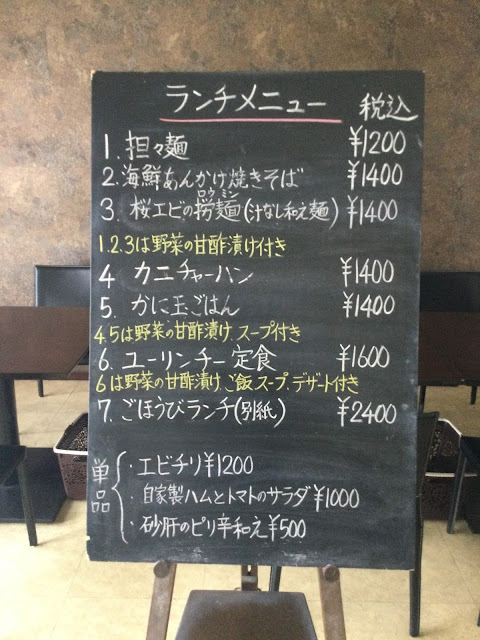 ランチメニュー 税込
1. 担々麺 ¥1200
2. 海鮮あんかけ焼きそば ¥1400
ロウミン
3. 桜エビの撈麺(汁なし和え麺) ¥1400
1.2.3は野菜の甘酢漬け付き
4 カニチャーハン ¥1400
5. かに玉ごはん ¥1400
4.5は野菜の甘酢漬け、スープ付き
6. ユーリンチー定食 ¥1600
6は野菜の甘酢漬け、ご飯、スープ、デザート付き
7. ごほうびランチ(別紙) ¥2400
単品
・エビチリ¥1200
・自家製ハムとトマトのサラダ¥1000
・砂肝のピリ辛和え¥500